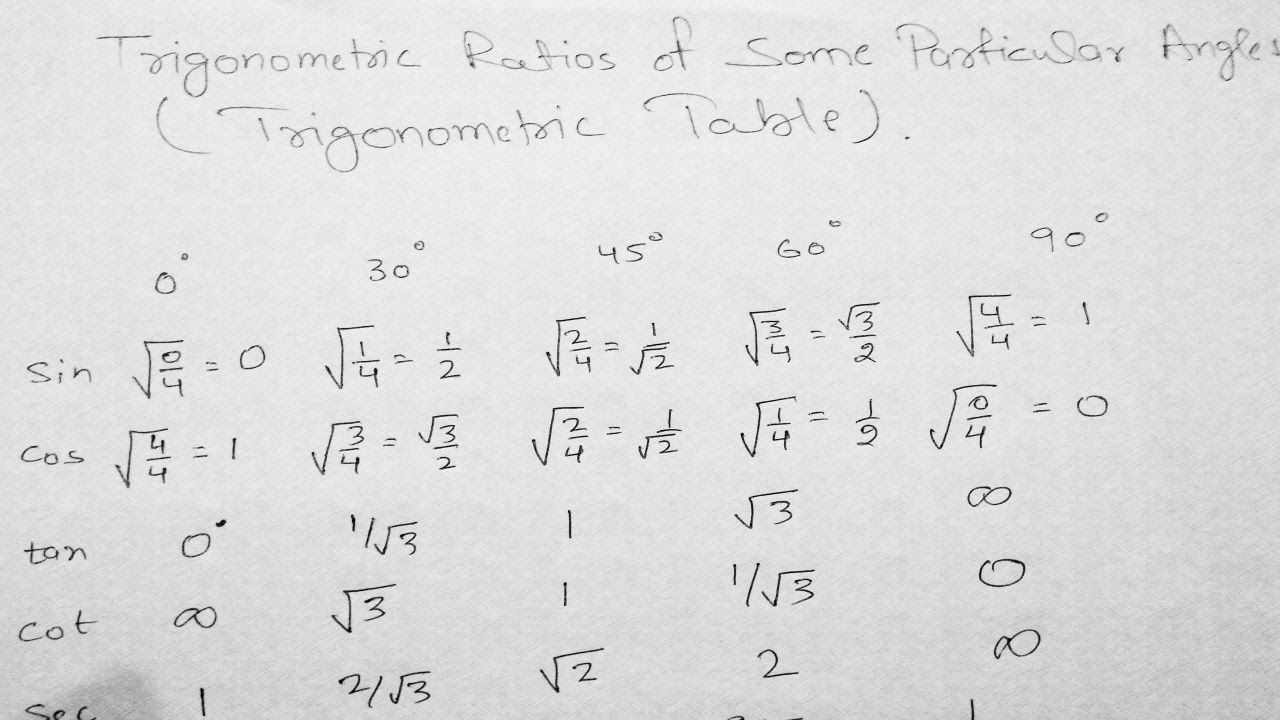 Trigonometric Ratios of Some Particular Angles
(Trigonometric Table).
0° 30° 45° 60° 90°
sin √(0/4) = 0 √(1/4) = 1/2 √(2/4) = 1/√2 √(3/4) = √3/2 √(4/4) = 1
cos √(4/4) = 1 √(3/4) = √3/2 √(2/4) = 1/√2 √(1/4) = 1/2 √(0/4) = 0
tan 0 1/√3 1 √3 ∞
cot ∞ √3 1 1/√3 0
sec 1 2/√3 √2 2 ∞